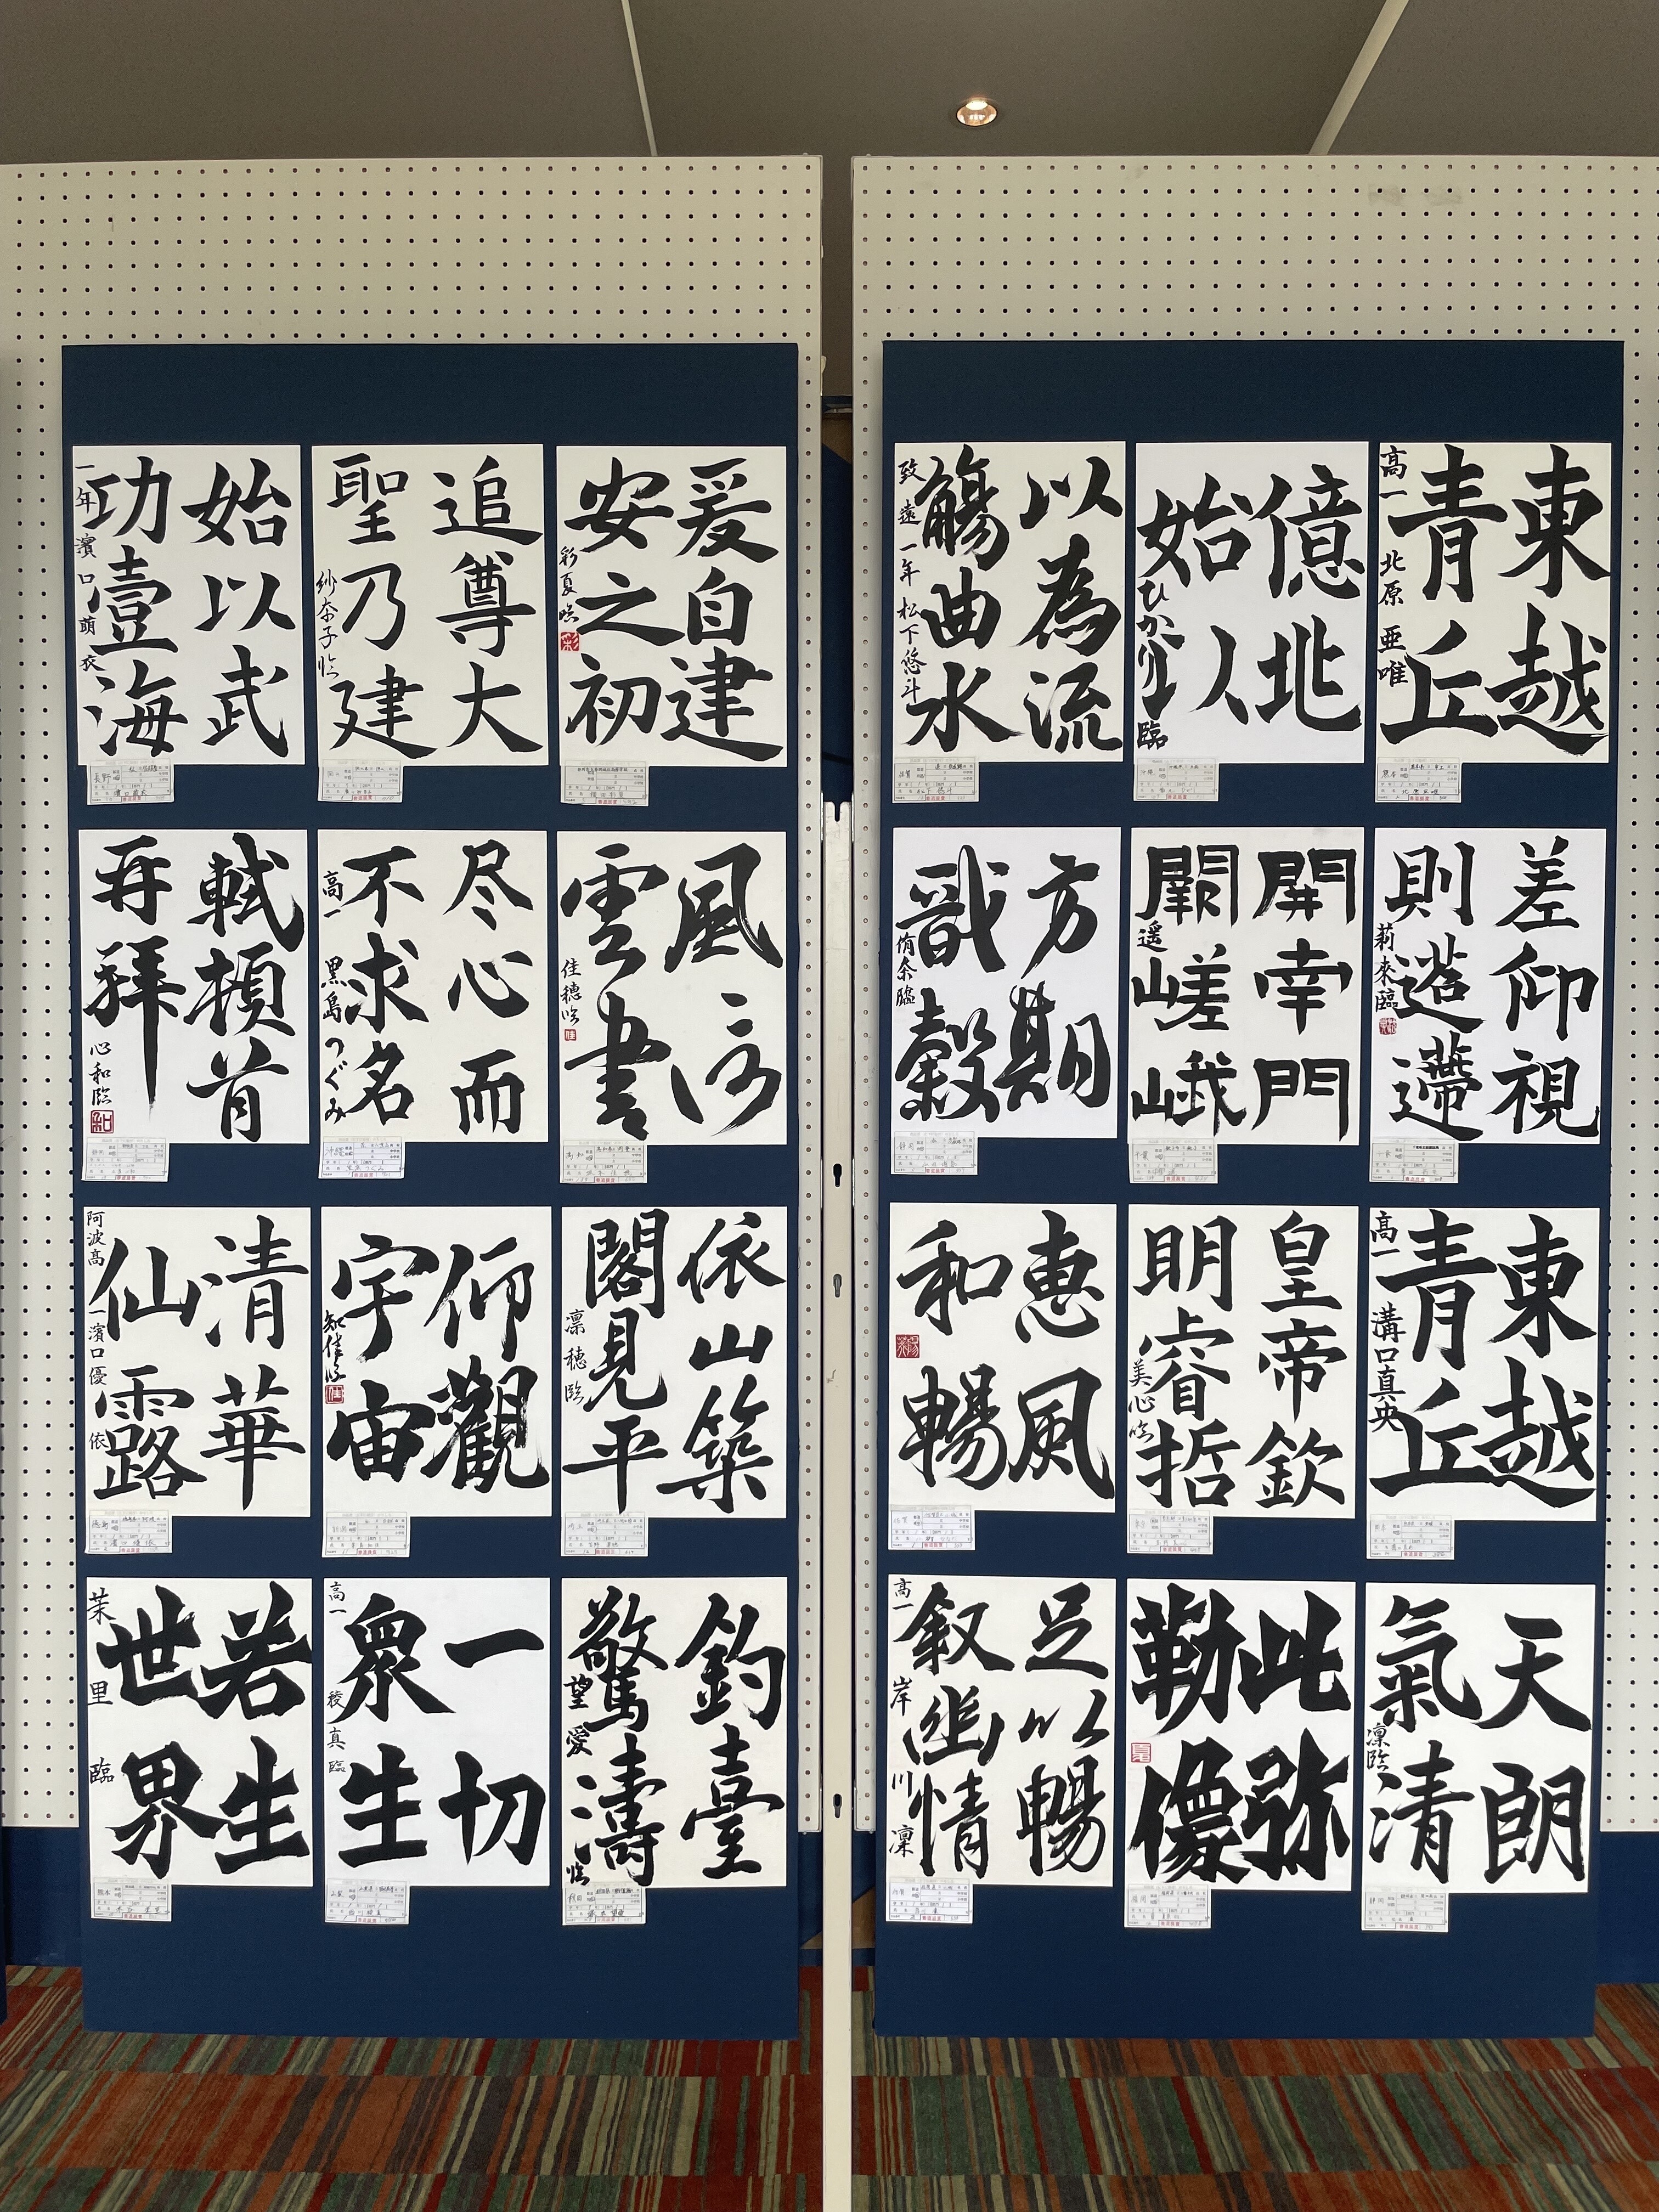 東越
青丘
高一 北原 亜唯
億兆
始以
ひかり臨
以為流
觴曲水
致遠 一年 松下悠斗
差仰視
則迢遰
莉來臨
開南門
闕嵯峨
遥
方期
戩穀
侑奈臨
東越
青丘
高一 溝口真央
皇帝欽
明睿哲
美心臨
惠風
和暢
天朗
氣清
凛臨
此弥
勒像
足以暢
叙幽情
高一 岸川 凜
爰自建
安之初
彩夏臨
追尊大
聖乃建
紗奈子臨
始以武
功壹海
一年 濱口萌衣
風信
雲書
佳穂臨
尽心而
不求名
高一 黒島つぐみ
軾頓首
再拜
心和臨
依山築
閣見平
凛穂臨
仰觀
宇宙
知佳臨
清華
仙露
阿波高一 濱口優依
釣臺
驚濤
望愛臨
一切
衆生
高一 稜真臨
若生
世界
茉里臨